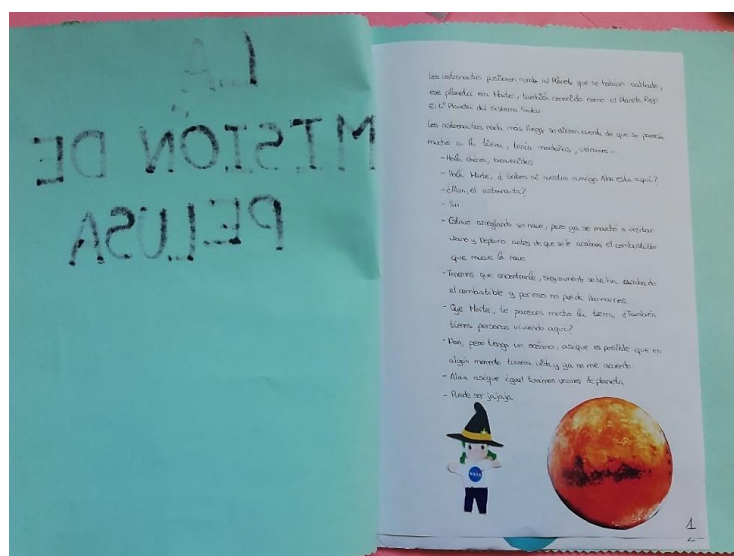 LA
MISIÓN DE
PELUSA
Los astronautas pusieron rumbo al Planeta que se habían saltado,
ese planeta era Marte, también conocido como el Planeta Rojo
El 4º Planeta del Sistema Solar.
Los astronautas nada más llegar se dieron cuenta de que se parecía
mucho a la tierra, tenía montañas, volcanes...
- Hola chicos, bienvenidos
- Hola Marte, ¿Sabes si nuestro amigo Alan esta aquí?
- ¿Alan, el astronauta?
- Sii
- Estuvo arreglando su nave, pero ya se marchó a visitar
Urano y Neptuno antes de que se le acabara el combustible
que mueve la nave.
- Tenemos que encontrarle, seguramente se le ha acabado
el combustible y por eso no puede llamarnos.
- Oye Marte, te pareces mucho a la tierra ¿También
tienes personas viviendo aquí?
- Noo, pero tengo un océano, asique es posible que en
algún momento tuviera vida y ya no me acuerdo.
- Alaa asique igual tuvimos vecinos de planeta
- Puede ser jajaja
NASA
1